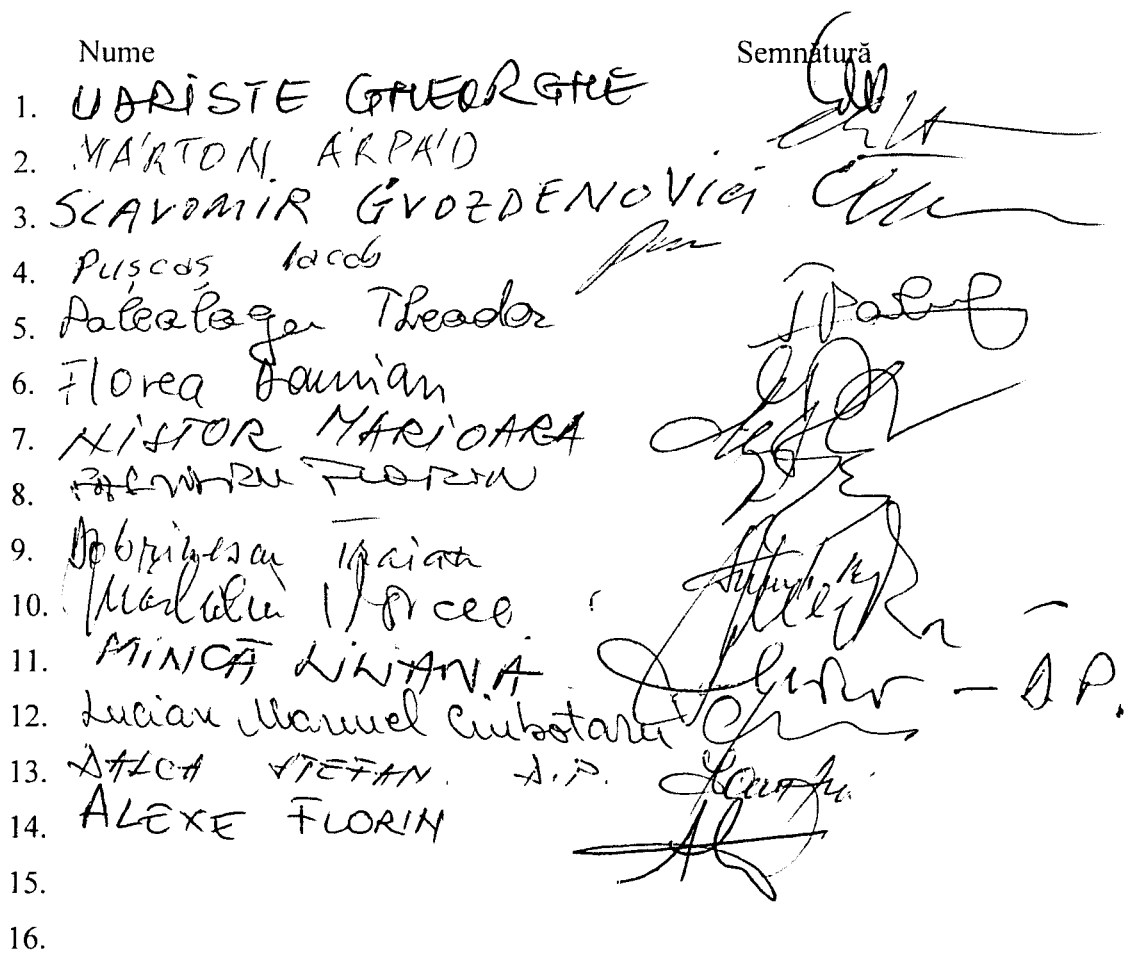 Nume Semnătură
1. VARISTE GHEORGHE
2. MÁRTON ÁRPÁD
3. SLAVOMIR GVOZDENOVICI
4. Pușcaș Iacob
5. Paleologu Theodor
6. Florea Damian
7. NISTOR MARIOARA
8. FLORIN
9. Dobrinescu Traian
10.
11. MINCĂ LILIANA - A.P.
12. Lucian Manuel Ciubotaru
13. DALCA STEFAN. A.P.
14. ALEXE FLORIN
15.
16.